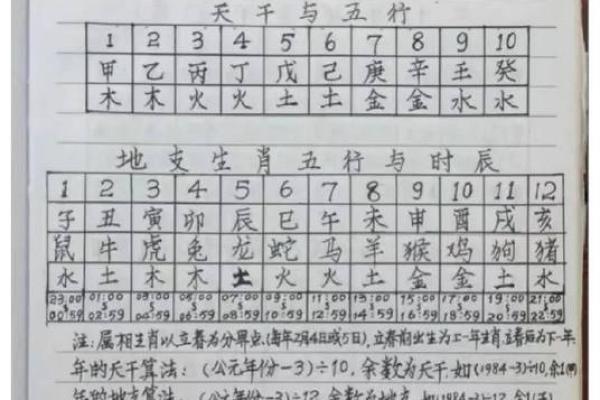 天干与五行
1 2 3 4 5 6 7 8 9 10
甲 乙 丙 丁 戊 己 庚 辛 壬 癸
木 木 火 火 土 土 金 金 水 水
地支生肖五行与时辰
1 2 3 4 5 6 7 8 9 10 11 12
子 丑 寅 卯 辰 巳 午 未 申 酉 戌 亥
鼠 牛 虎 兔 龙 蛇 马 羊 猴 鸡 狗 猪
水 土 木 木 土 火 火 土 金 金 土 水
23:00 01:00 03:00 05:00 07:00 09:00 11:00 13:00 15:00 17:00 19:00 21:00
00:59 02:59 04:59 06:59 08:59 10:59 12:59 14:59 16:59 18:59 20:59 22:59
注:属相生肖以立春为分界点,(每年2月4日或5日),立春前出生为上一年生肖.立春后为下一年.
年的天干算法:(公元年份-3)÷10,余数为天干,如(1984-3)÷10,余1(
年的地支算法:(公元年份-3)÷12,余数为地支,如(1984-3)÷12,余1(